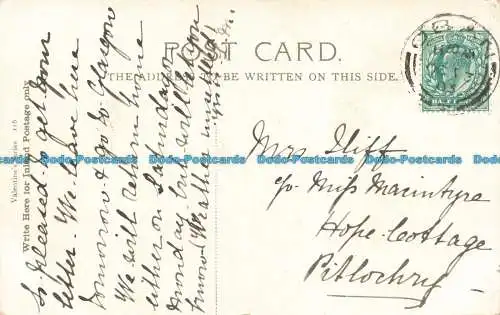 POST CARD.
THE ADDRESS TO BE WRITTEN ON THIS SIDE.
Valentine's Series 116
Write Here for Inland Postage only.
So pleased to get your
letter. We leave here
tomorrow & go to Glasgow
We will return home
either on Saturday or
Monday but will let you
know. Weather unsettled
OBAN
Mrs Iliff
c/o Miss Macintyre
Hope Cottage
Pitlochry
Dodo-Postcards Dodo-Postcards Dodo-Postcards Dodo-Postcards Dodo-Postcards Dodo-Postcards